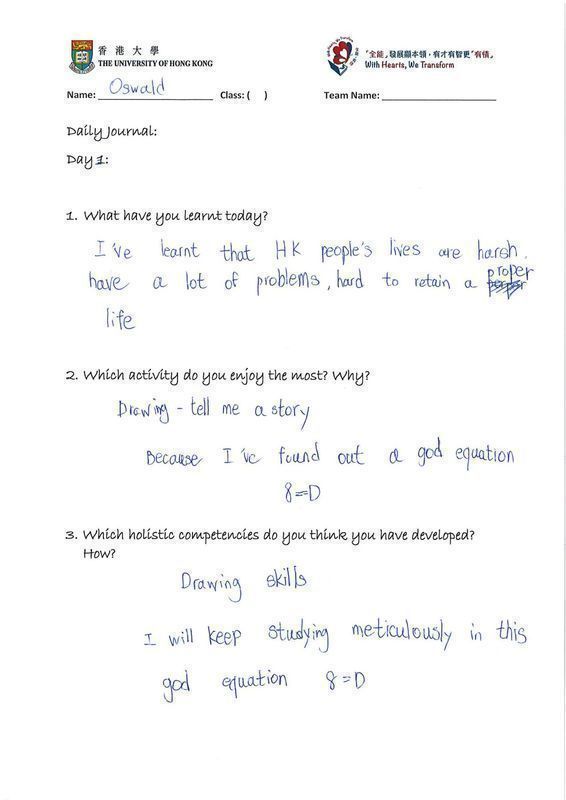 香港大學
THE UNIVERSITY OF HONG KONG
「全能」發展顯本領，有才有智更"有情」
With Hearts, We Transform
Name: Oswald Class: ( ) Team Name:
Daily Journal:
Day 1:
1. What have you learnt today?
I've learnt that HK people's lives are harsh.
have a lot of problems, hard to retain a proper
life
2. Which activity do you enjoy the most? Why?
Drawing - tell me a story
Because I've found out a god equation
8=D
3. Which holistic competencies do you think you have developed?
How?
Drawing skills
I will keep studying meticulously in this
god equation 8=D